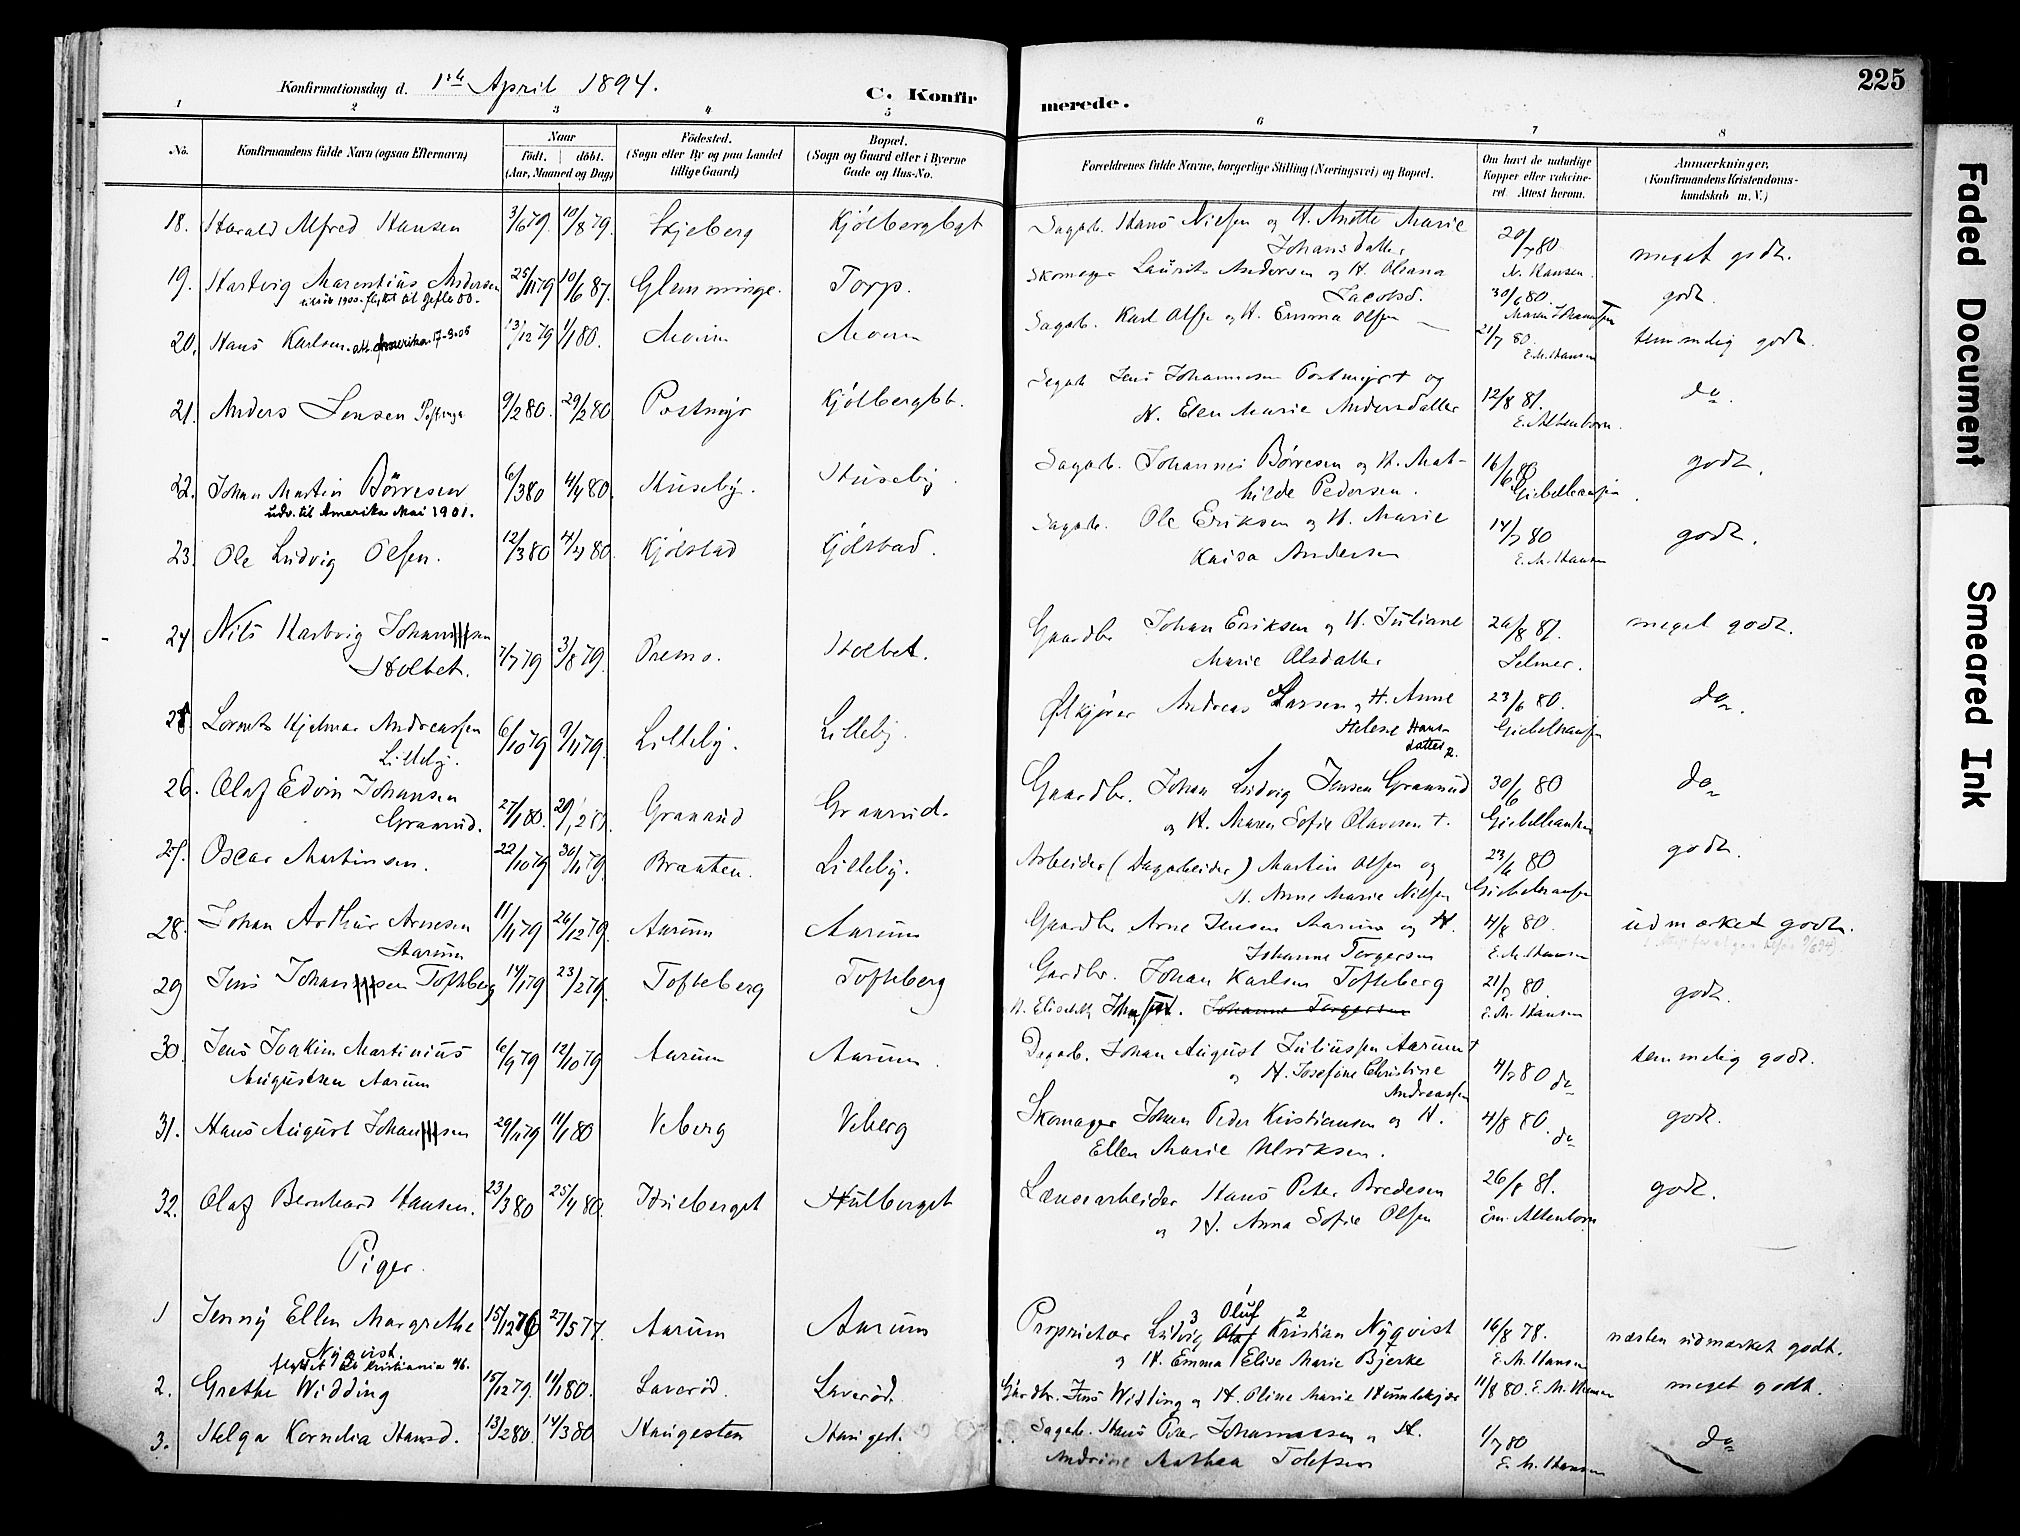 225
Konfirmationsdag d. 1ste April 1894.
C. Konfirmerede.
1 2 3 4 5 6 7 8
No. Konfirmandens fulde Navn (ogsaa Efternavn) Naar født. døbt. (Aar, Maaned og Dag) Fødested. (Sogn eller By og paa Landet tillige Gaard) Bopæl. (Sogn og Gaard eller i Byerne Gade og Hus-No. Forældrenes fulde Navne, borgerlige Stilling (Næringsvei) og Bopæl. Om havt de naturlige Kopper eller vaccineret. Attest herom. Anmærkninger. (Konfirmandens Kristendomskundskab m. V.)
18. Harald Alfred Hansen 3/6 79. 10/8 79. Skjeberg Kjölbergbgt Sagarb. Hans Nielsen og H. Anette Marie Johansdatter 20/7 80 N. Hansen. meget godt.
19. Hartvig Marentius Andersen 25/11 79 10/6 87. Glemminge. Torp. Skomager Laurits Andersen og H. Oliana Jacobsd. 30/6 80. godt.
flyttet til Gefle 00.
20. Hans Karlsen. Amerika 17-3-08 13/12 79 1/1 80. Moum Moum Sagarb. Karl Olsen og H. Emma Olsen 21/7 80. E. M. Hansen temmelig godt.
21. Anders Jensen 9/2 80. 29/2 80 Postmyr Kjölbergbt. Sagarb Jens Johannesen Postmyr + og H. Elen Marie Andersdatter 12/8 81. E. Altenborn. do.
22. Johan Martin Börresen 6/3 80 4/4 80. Huseby. Huseby. Sagarb. Johannes Börresen og H. Mathilde Pedersen. 16/6 80 Giebelhausen godt.
udv. til Amerika Mai 1901.
23. Ole Ludvig Olsen. 12/3 80 4/4 80. Kjölstad Kjölstad. Sagarb. Ole Eriksen og H. Marie Kaisa Andersen 14/7 80 E. M. Hansen godt.
24 Nils Hartvig Johansen Holtet. 7/7 79 3/8 79. Premo. Holtet. Gaardbr Johan Eriksen og H. Juliane Marie Olsdatter 26/8 81. Selmer. meget godt.
25. Lorents Hjelmar Andreassen Lilleby. 6/10 79 9/11 79. Lilleby. Lilleby. Ölkjører Andreas Larsen og H. Anne Helene Hansdatter 23/6 80. Giebelhausen do.
26. Olaf Edvin Johansen Graarud. 27/1 80. 29/1 Graarud Graarud. Gaardbr. Johan Ludvig Jensen Graarud og H. Maren Sofie Olavesen +. 30/6 80 Giebelhausen do
27. Oscar Martinsen. 22/10 79 30/11 79. Braaten. Lilleby. Arbeider (Dagarbeider) Martin Olsen og H. Anne Marie Nielsen 23/6 80 Giebelhausen godt.
28. Johan Arthur Arnesen Aarum 11/11 79 26/12 79. Aarum Aarum Gaardbr Arne Jensen Aarum og H. Johanne Torgersen 4/8 80. E. M. Hansen udmærket godt.
29 Jens Johansen Tofteberg 14/1 79 23/2 79. Tofteberg Tofteberg Gardbr. Johan Karlsen Tofteberg 21/7 80. E. M. Hansen godt.
H. Elisabeth Johannesd. Johanne Torgersen
30. Jens Joakim Martinius Augustsen Aarum 6/9 79 12/10 79 Aarum Aarum. Dagarb. Johan August Juliussen Aarum + og H. Josefine Christine Andreassen 4/7 80 do temmelig godt.
31. Hans August Johansen 29/11 79 11/1 80 Veberg Veberg Skomager Johan Peder Kristiansen og H. Ellen Marie Ulriksen. 4/8 80. do godt.
32. Olaf Bernhard Hansen. 23/3 80 25/4 80. Huleberget Hulberget Lænsearbeider Hans Peter Bredesen og H. Anna Sofie Olsen 26/8 81. Em. Altenborn godt.
Piger.
1 Jenny Ellen Margrethe Nyqvist. 15/12 76 27/5 77. Aarum Aarum Proprietær Ludvig Oluf Kristian Nyqvist og H. Emma Elise Marie Bjerke 16/8 78. E. M. Hansen næsten udmærket godt.
flyttet til Kristiania 96.
2. Grethe Widding 15/12 79. 11/1 80. Laverød. Laverød. Gårdbr. Jens Widding og H. Oline Marie Humlekjær 11/8 80. E. M. Hansen meget godt.
3. Helga Kornelia Hansd. 13/2 80. 14/3 80 Haugesten Hauget. Sagarb. Hans Peter Johannessen og H. Andrine Mathea Tolefsen 1/7 80 E. M. Hansen do
Faded Document
Smeared Ink